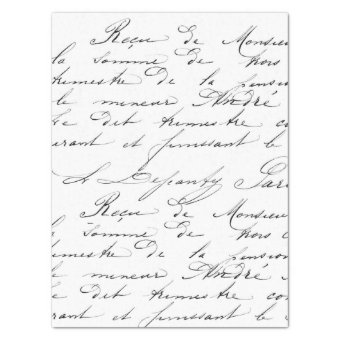 Reçu de Monsieu
la somme de hors
trimestre De la pension
le mineur André
Le dit trimestre co
urant et finissant le
A Depanty Par
Reçu de Monsieu
la somme de hors
trimestre De la pension
le mineur André
Le dit trimestre co
urant et finissant le